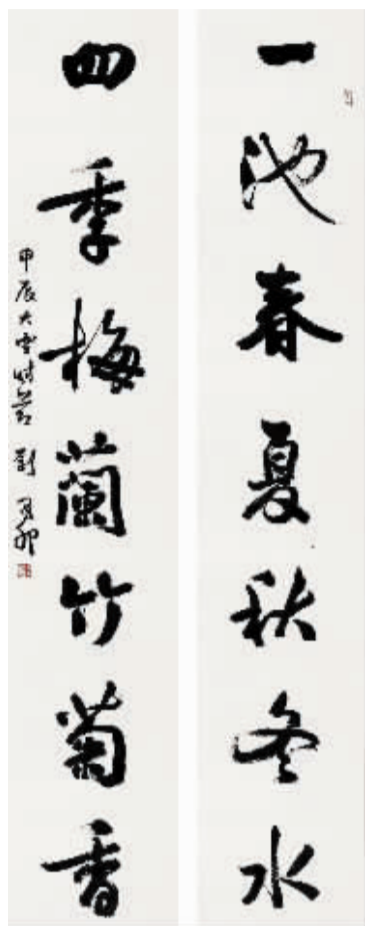 一池春夏秋冬水
四季梅蘭竹菊香
甲辰大雪時節 劉